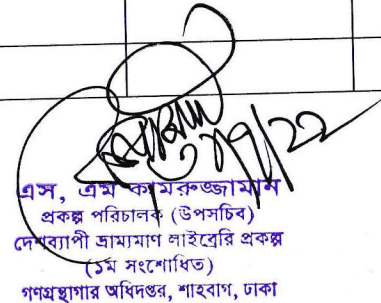 এস, এম কামরুজ্জামান
প্রকল্প পরিচালক (উপসচিব)
দেশব্যাপী ভ্রাম্যমাণ লাইব্রেরি প্রকল্প
(১ম সংশোধিত)
গণগ্রন্থাগার অধিদপ্তর, শাহবাগ, ঢাকা